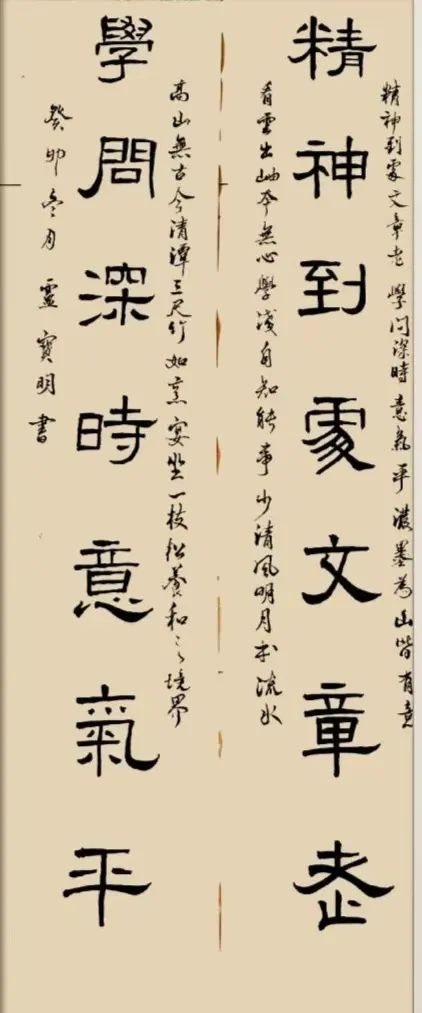 精神到處文章老 學問深時意氣平 濃墨為山皆有意
精神到處文章老
看雲出岫本無心 學淺自知能事少 清風明月本流水
高山無古今 清潭三尺竹如意 宴坐一枝松養和之境界
學問深時意氣平
癸卯冬月 靈寶明書